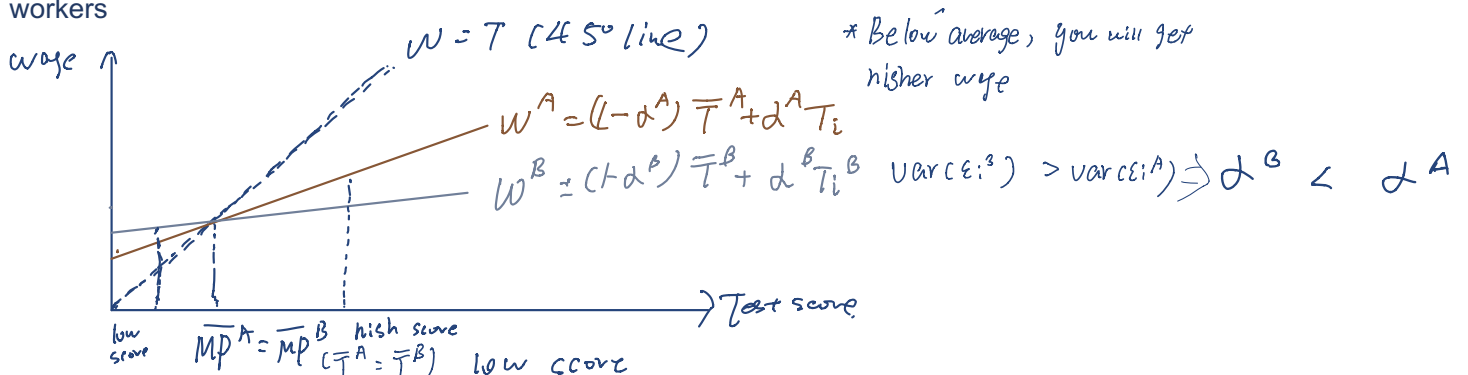 workers
W = T (45° line)
wage
* Below average, you will get
higher wage
W^A = (1-α^A) T̅^A + α^A T_i
W^B = (1-α^B) T̅^B + α^B T_i^B var(ε_i^B) > var(ε_i^A) ⇒ α^B < α^A
Test score
low
score
M̅P̅^A = M̅P̅^B high score
(T̅^A = T̅^B) low score